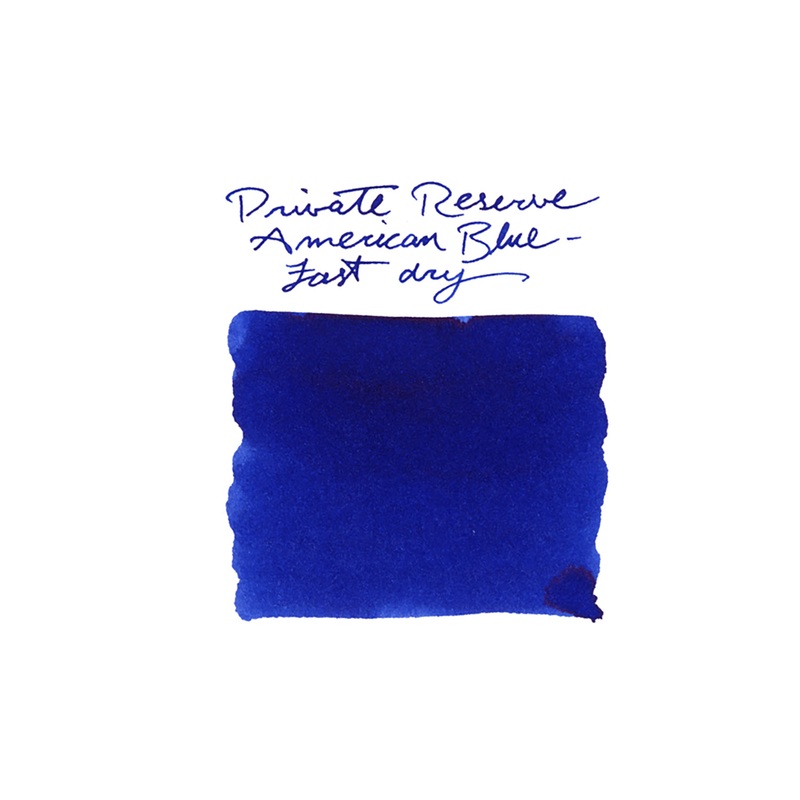 Private Reserve
American Blue -
Fast dry